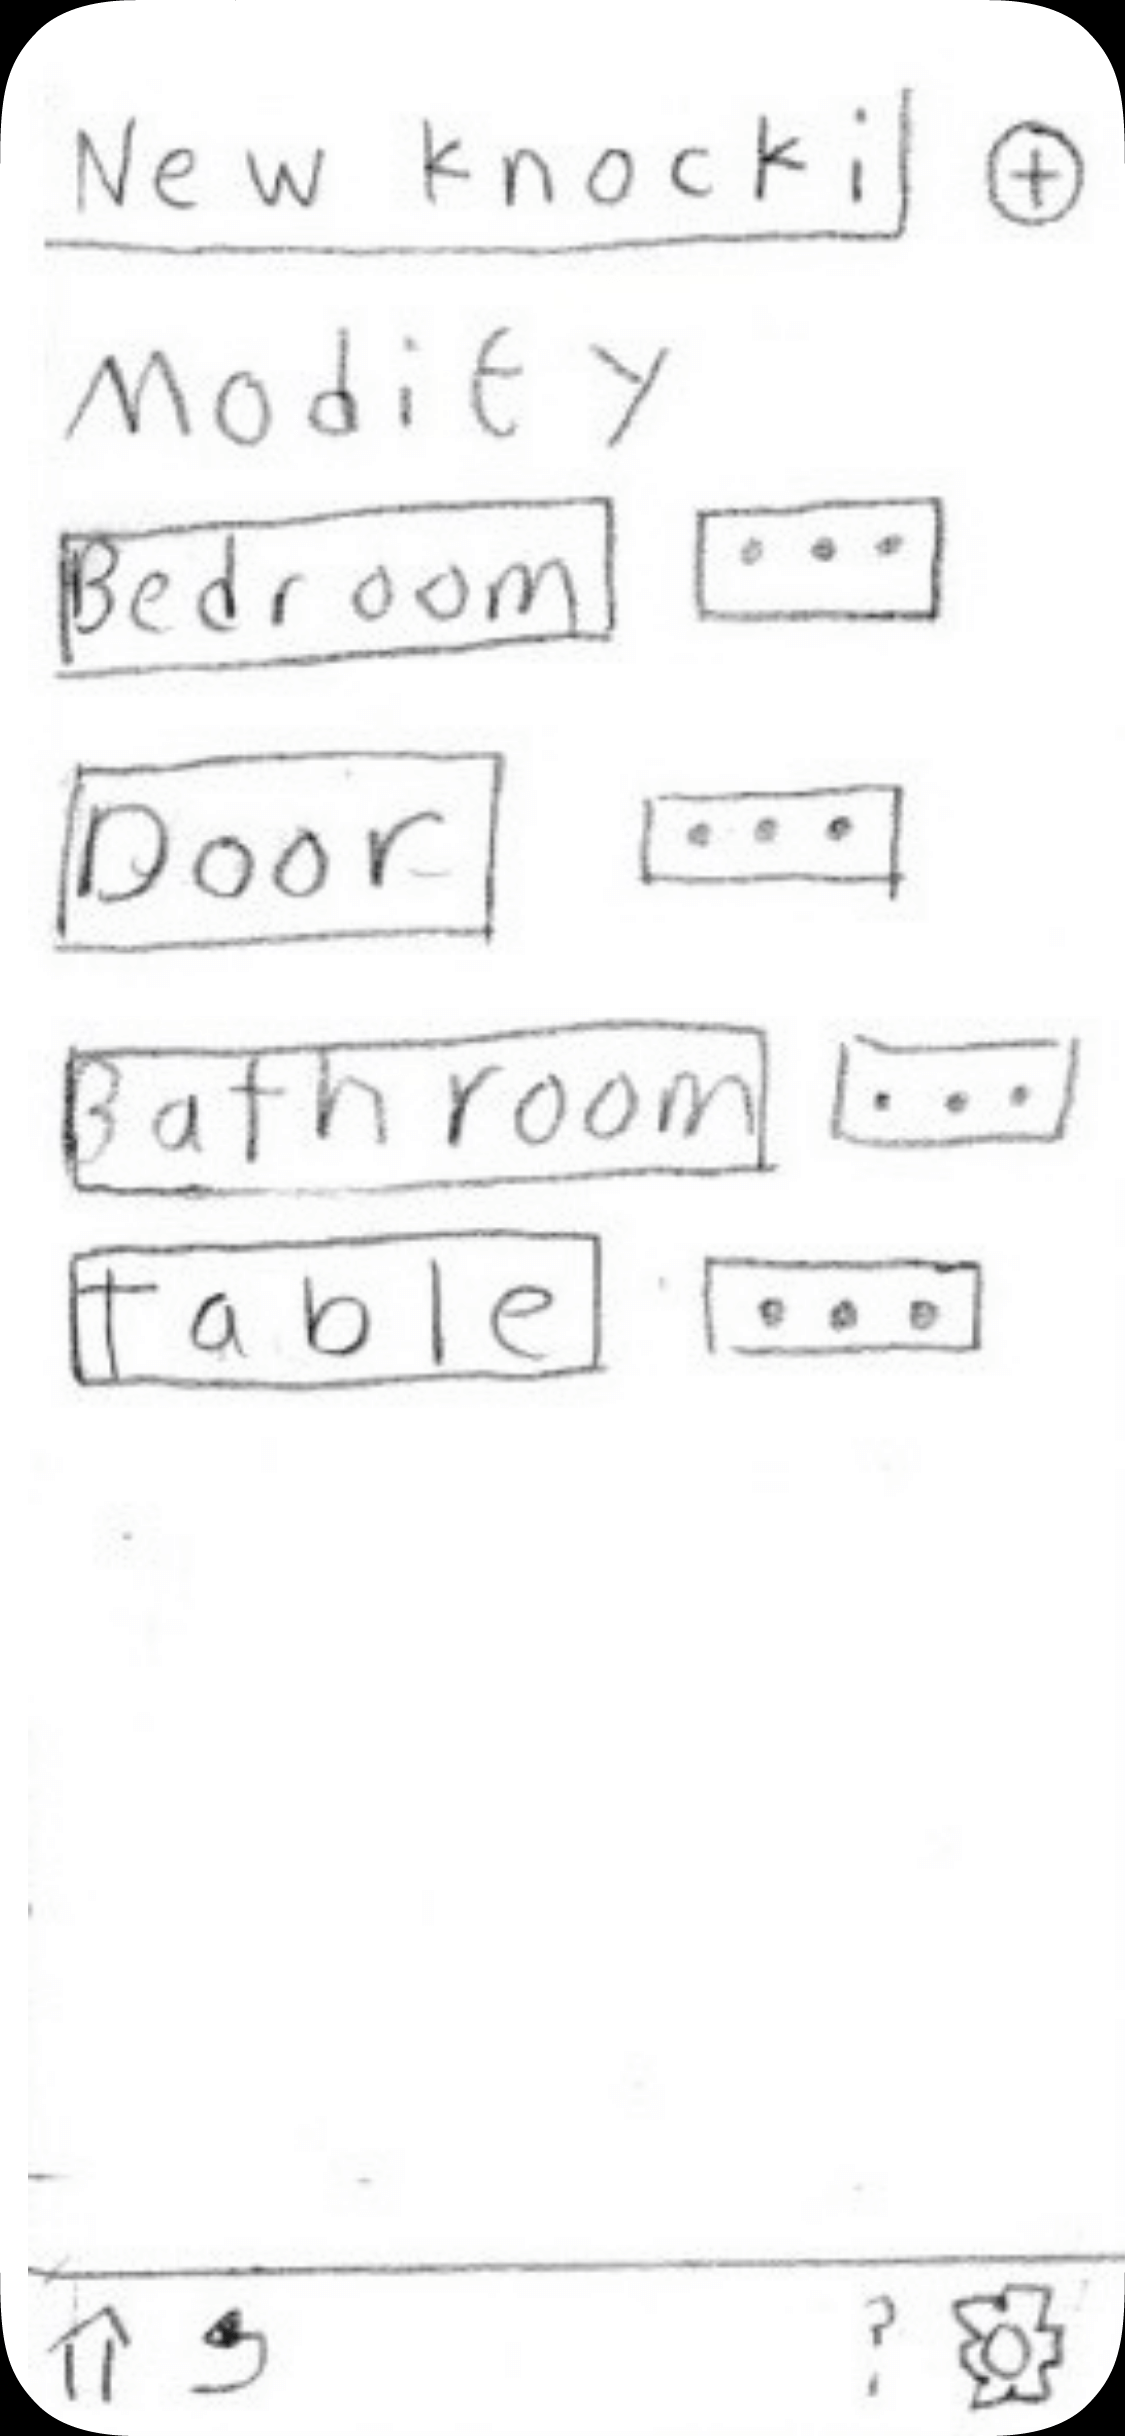 New knocki +
Modify
Bedroom ...
Door ...
Bathroom ...
table ...
?